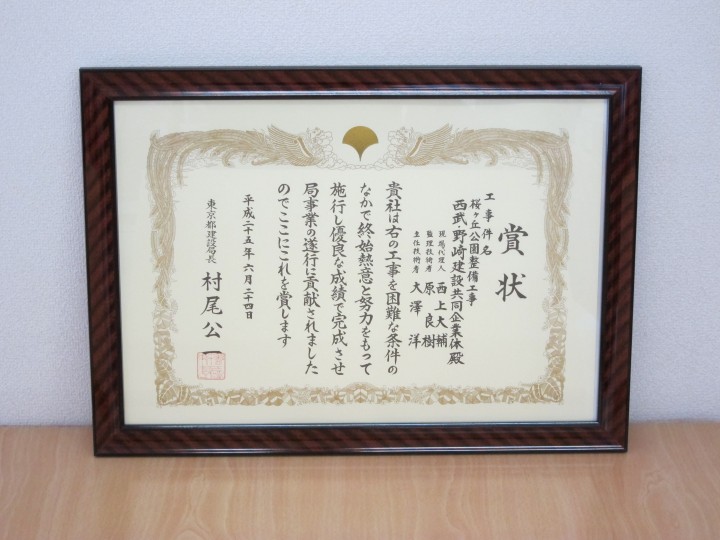 賞状
工事件名
桜ヶ丘公園整備工事
西武・野崎建設共同企業体殿
現場代理人 西上大輔
監理技術者 原良樹
主任技術者 大澤洋
貴社は右の工事を困難な条件の
なかで終始熱意と努力をもって
施行し優良な成績で完成させ
局事業の遂行に貢献されました
のでここにこれを賞します
平成二十五年六月二十四日
東京都建設局長 村尾公一